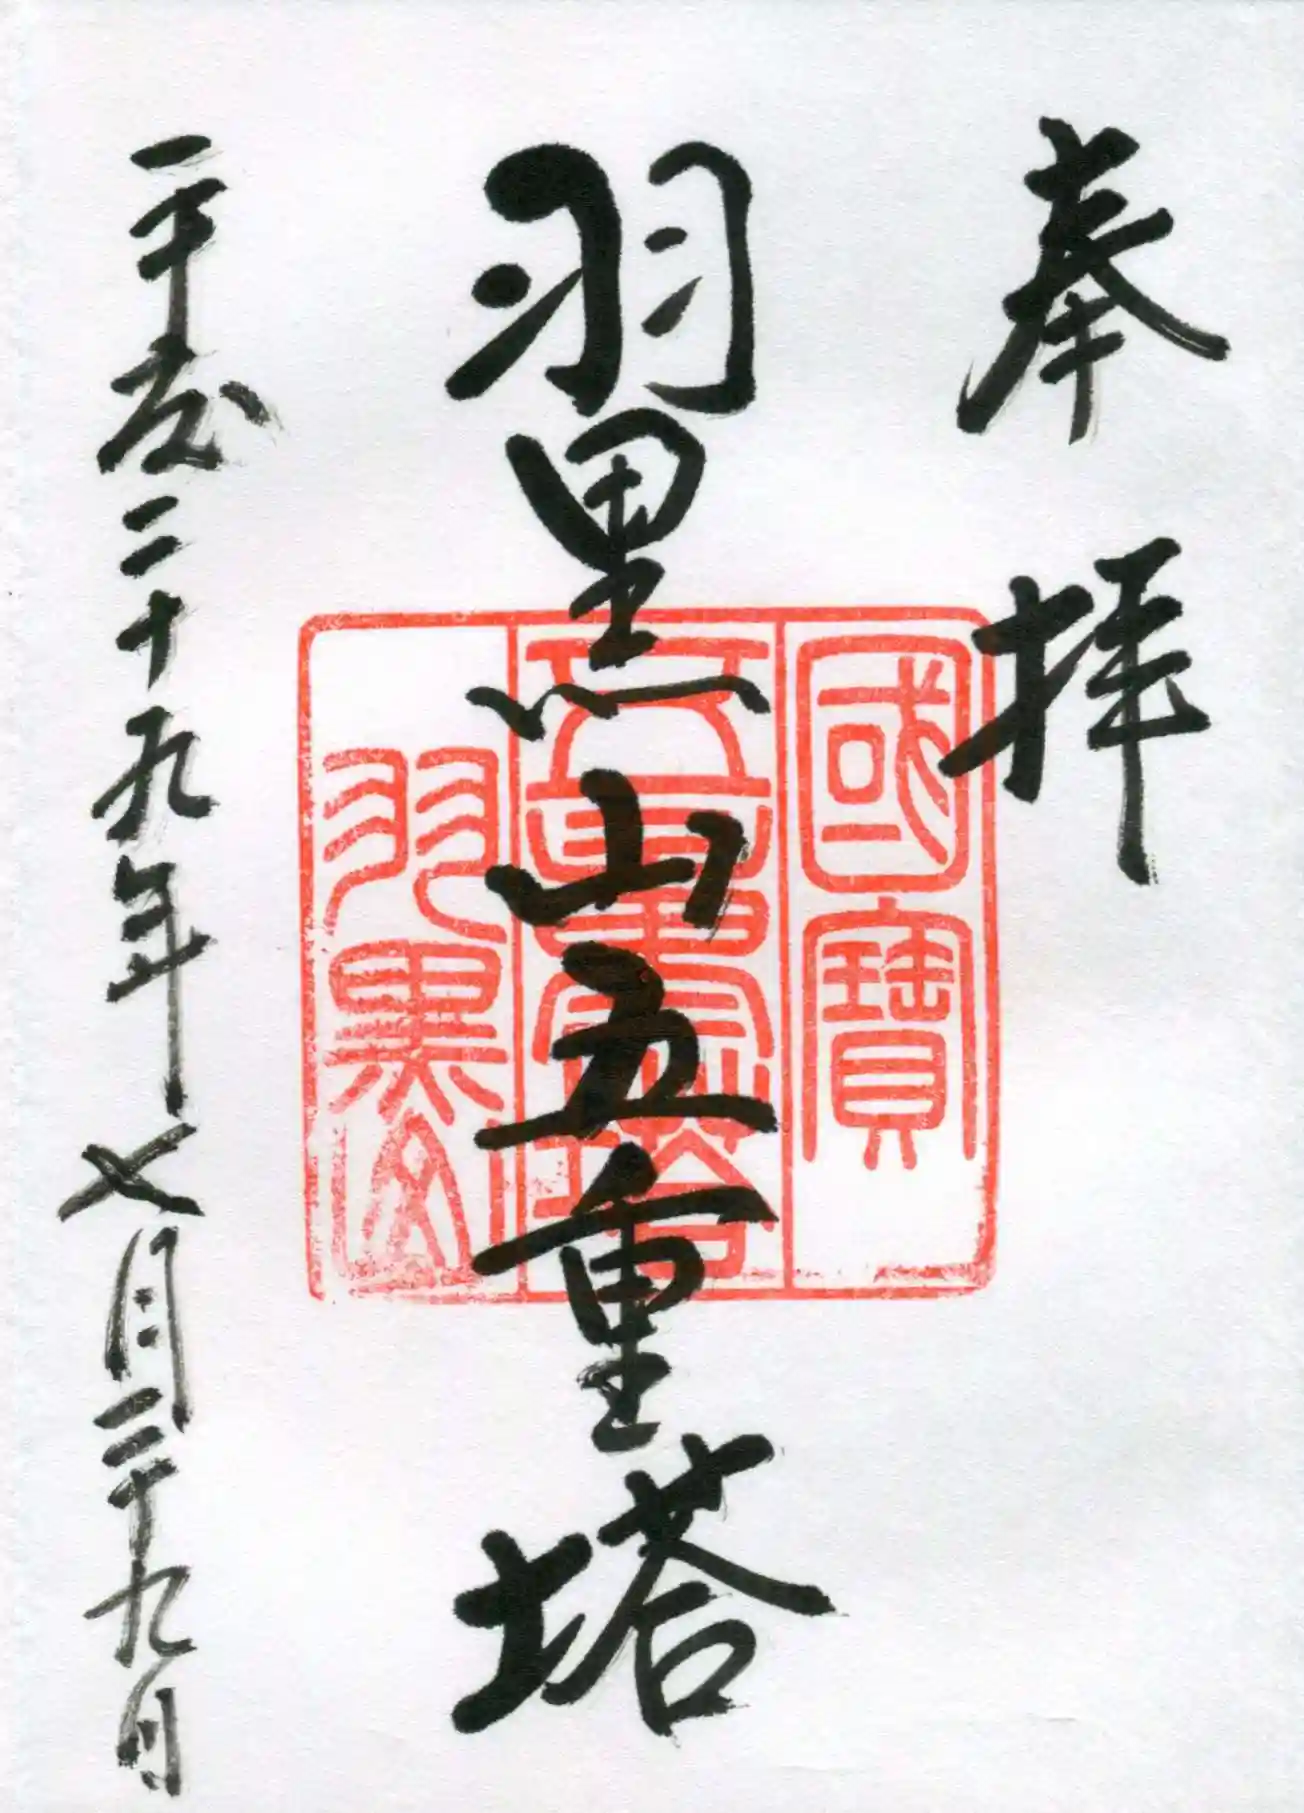 奉拝
羽黒山五重塔
國寶
五重塔
羽黒山
平成二十九年七月二十九日